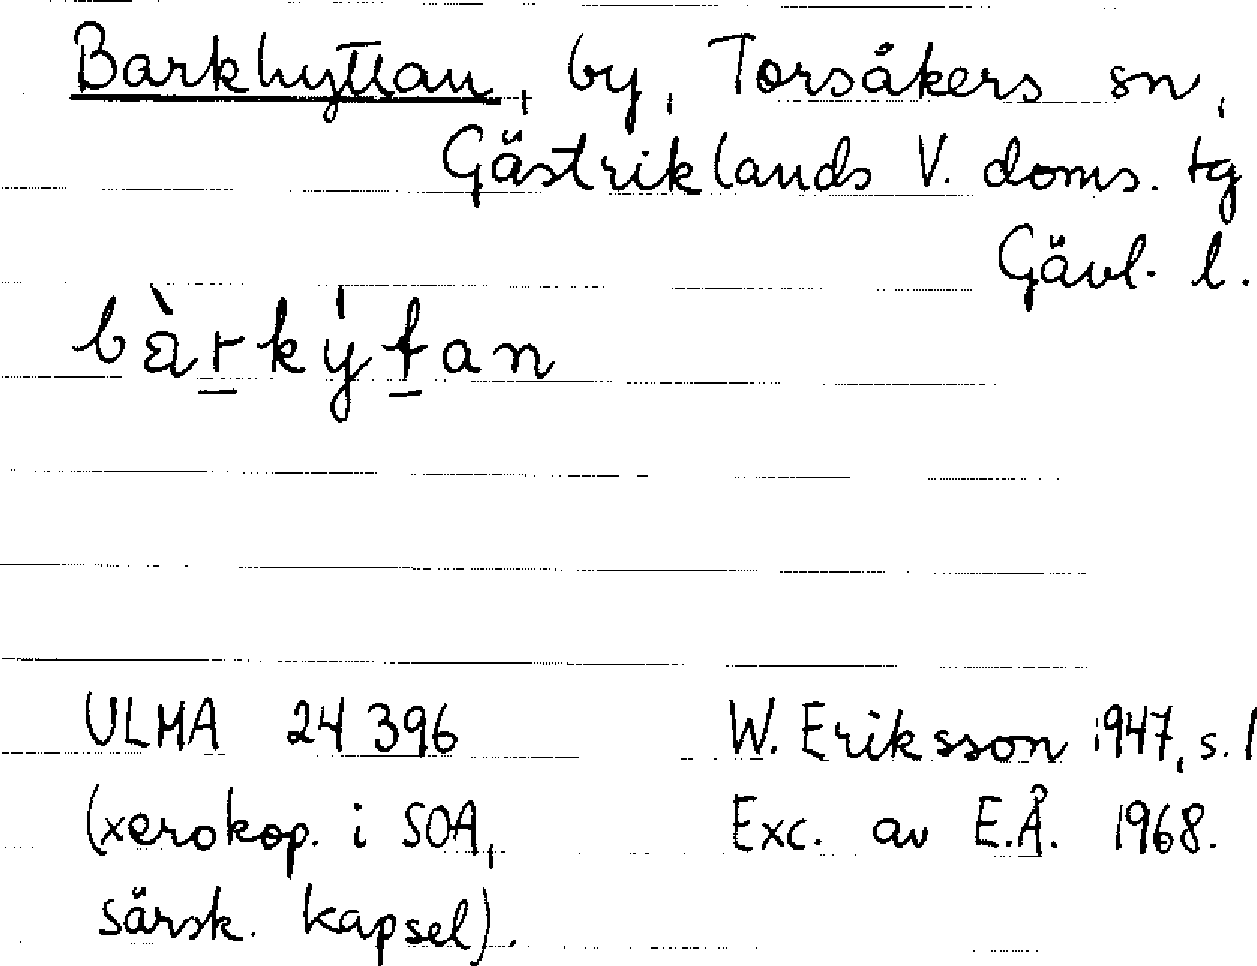 Barkhyttan, by, Torsåkers sn,
Gästriklands V. doms. tg
Gävl. l.
bàrkýtan
ULMA 24 396 W. Eriksson 1947, s. 1
(xerokop. i SOA, Exc. av E.Å. 1968.
särsk. kapsel).